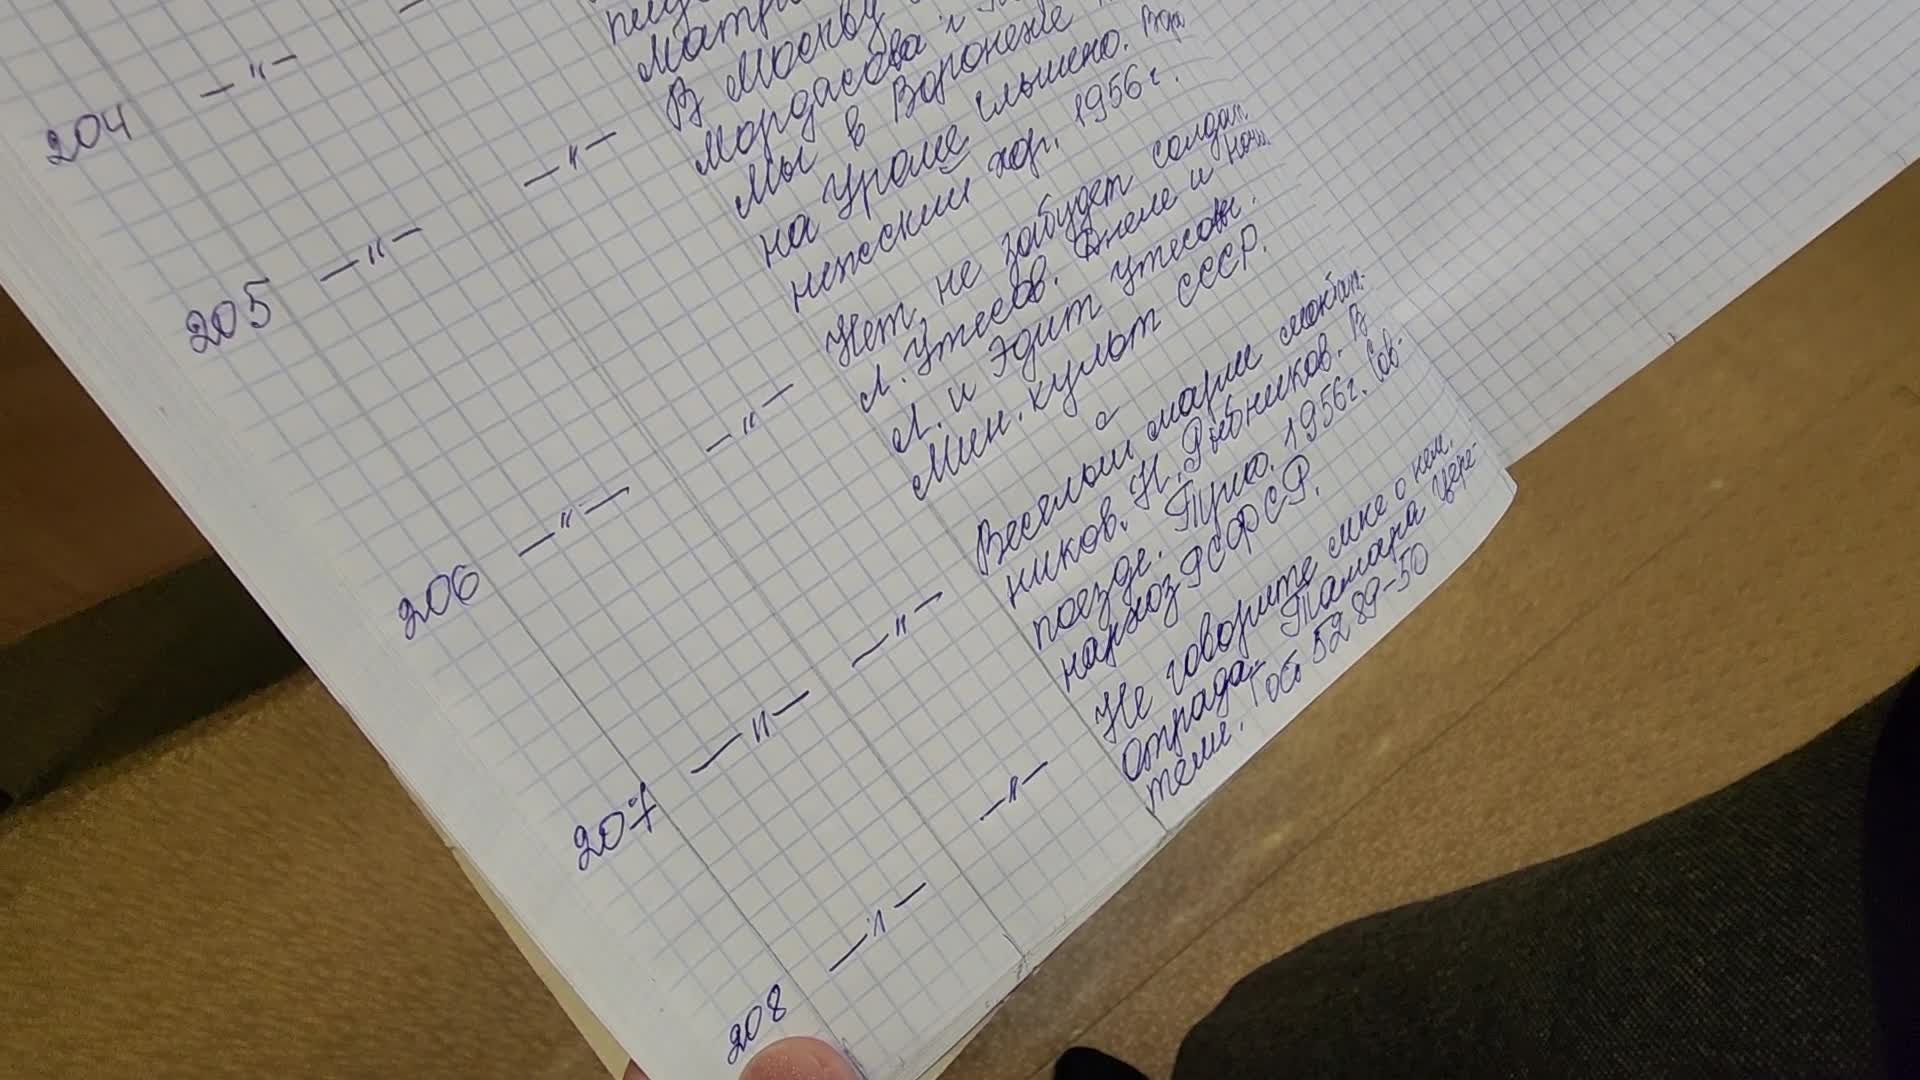 204 —"—
В Москву
Мордасова и
Мы в Воронеже
на Урале слышено. Воро
нежский хор. 1956 г.
205 —"— —"—
Нет, не забудет солдат
Л. Утесов. Днем и ночь
Л. и Эдит Утесовы.
Мин. культ СССР.
206 —"— —"—
Веселый марш монтаж.
ников. Н. Рыбников. В
поезде. 1956 г. Сов-
нархоз РСФСР.
207 —"— —"—
Не говорите мне о нем.
Отрада. Тамара Цере-
тели. Гост 52 89-50
208 —"— —"—